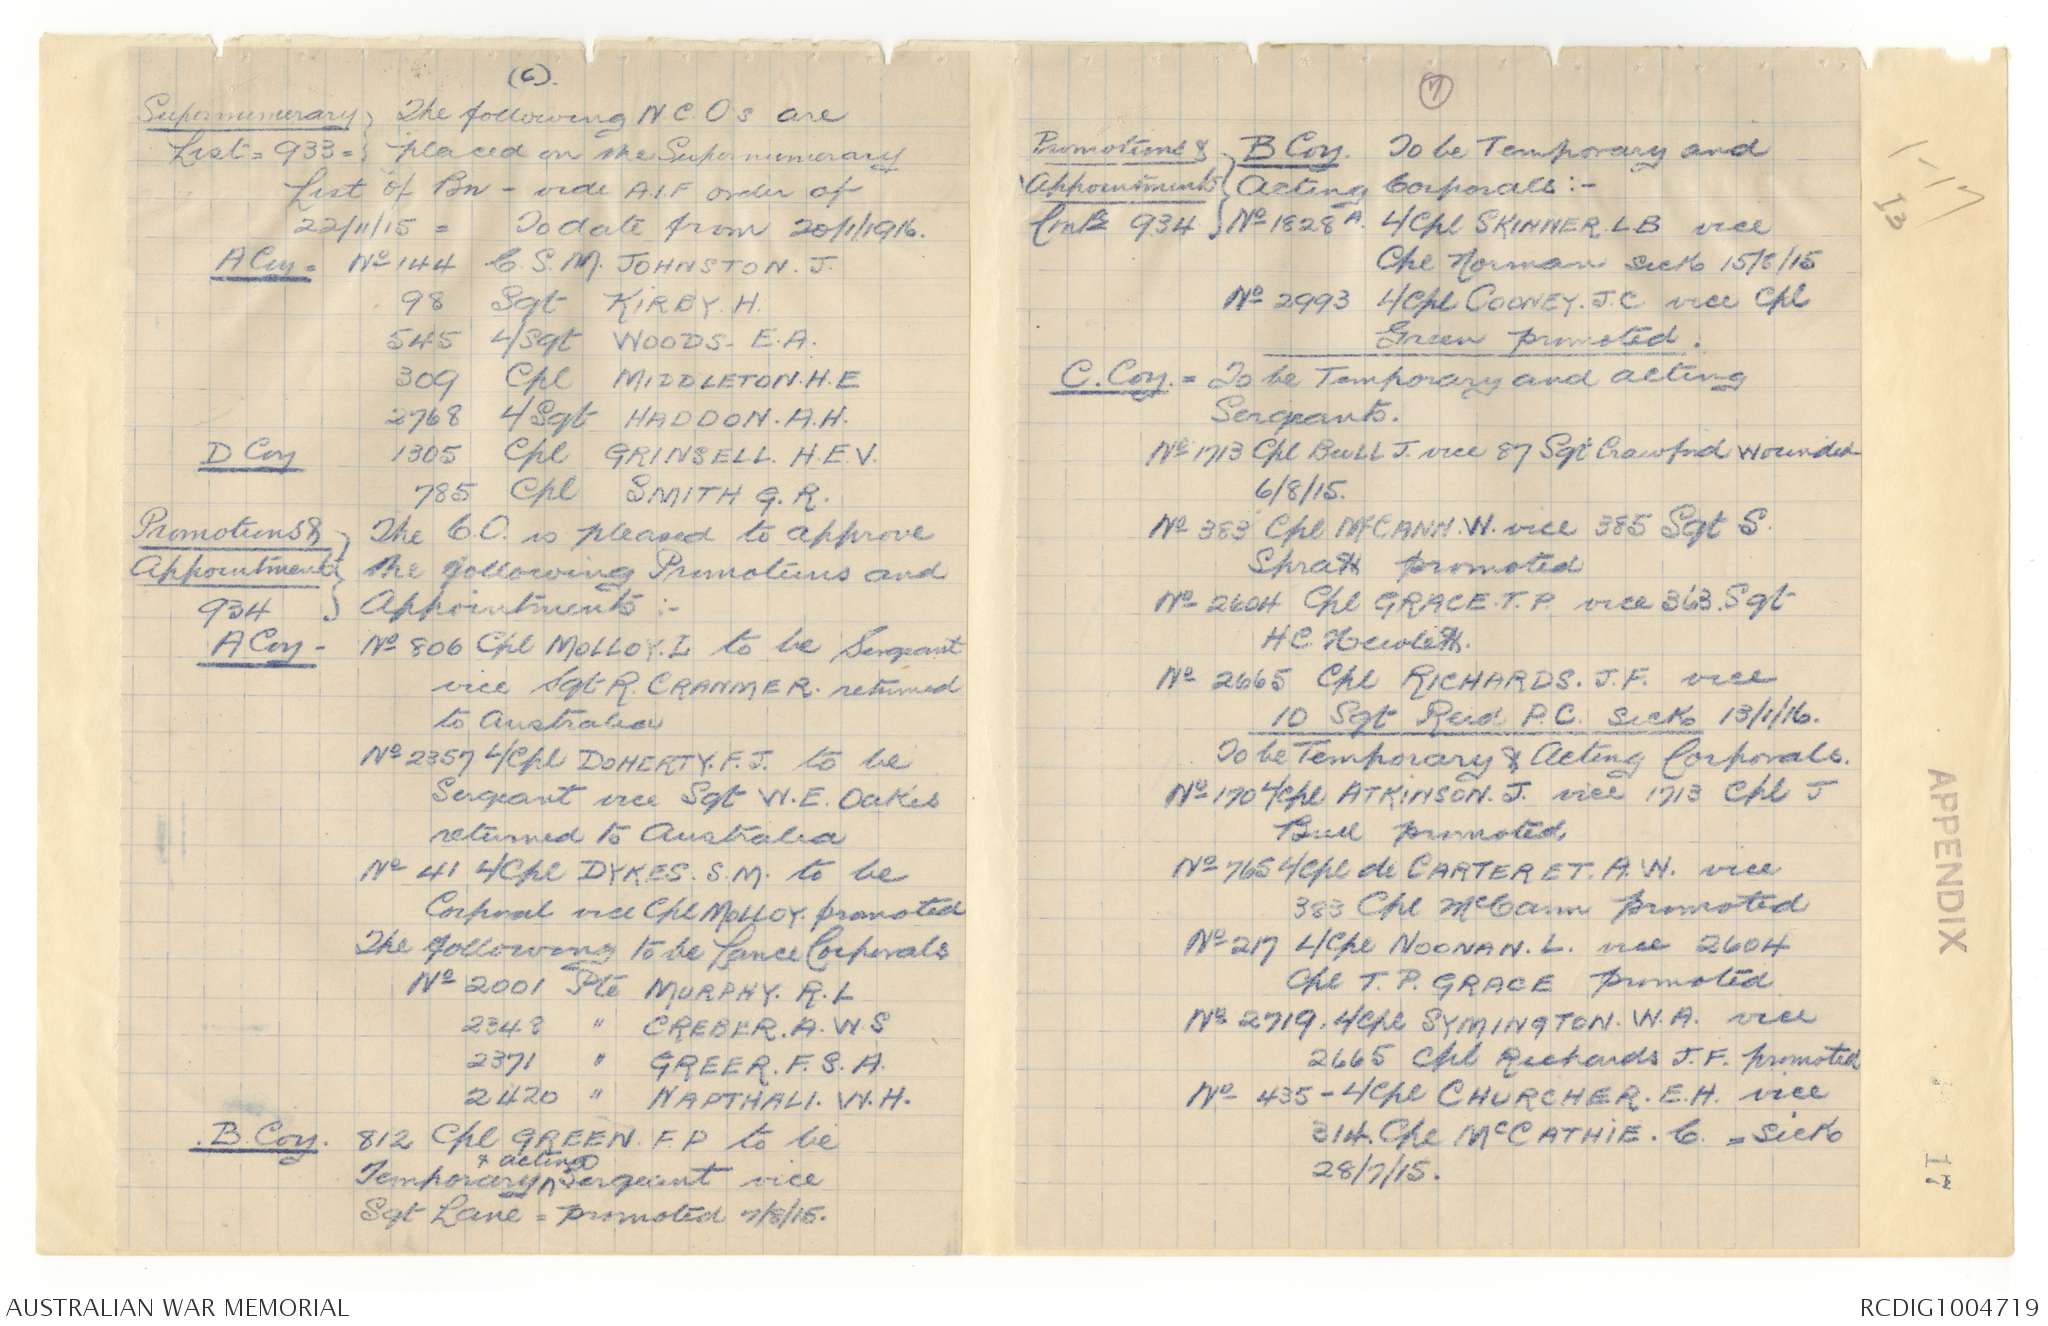 (6).
Supernumerary } The following N.C.Os are
List = 933 = } placed on the Supernumerary
List of Bn - vide A.I.F order of
22/11/15 = To date from 20/1/1916.
A Coy = No 144 C.S.M. JOHNSTON. J.
98 Sgt KIRBY. H.
545 L/Sgt WOODS - E.A.
309 Cpl MIDDLETON. H.E
2768 L/Sgt HADDON. A.H.
D Coy 1305 Cpl GRINSELL. H.E.V.
785 Cpl SMITH G.R.
Promotions & } The C.O. is pleased to approve
Appointments } the following Promotions and
934 } Appointments :-
A Coy - No 806 Cpl MOLLOY. L to be Sergeant
vice Sgt R. CRANMER. returned
to Australia
No 2357 L/Cpl DOHERTY. F.J. to be
Sergeant vice Sgt W.E. Oakes
returned to Australia
No 41 L/Cpl DYKES. S.M. to be
Corporal vice Cpl MOLLOY. promoted
The following to be Lance Corporals
No 2001 Pte MURPHY. R.L
2348 " CREBER. A.W.S
2371 " GREER. F.S.A.
2420 " NAPTHALI. W.H.
.B. Coy. 812 Cpl GREEN. F.P to be
& acting
Temporary ^ Sergeant vice
Sgt Lane = promoted 7/8/15.
7
Promotions & } B Coy. To be Temporary and
Appointments } Acting Corporals :-
Contd 934 } No 1828A. L/Cpl SKINNER. L B vice
Cpl Norman sick 15/8/15
No 2993 L/Cpl COONEY. J.C vice Cpl
Green promoted.
C. Coy. = To be Temporary and acting
Sergeants.
No 1713 Cpl BULL J. vice 87 Sgt Crawford wounded
6/8/15.
No 383 Cpl McCANN. W. vice 385 Sgt S.
Spratt promoted
No 2604 Cpl GRACE. T.P. vice 363. Sgt
H C. Hewlett.
No 2665 Cpl RICHARDS. J.F. vice
10 Sgt Reid P.C. sick 13/1/16.
To be Temporary & Acting Corporals.
No 170 L/Cpl ATKINSON. J. vice 1713 Cpl J
Bull promoted
No 765 L/Cpl de CARTERET. A.W. vice
383 Cpl McCann promoted
No 217 L/Cpl NOONAN. L. vice 2604
Cpl T.P. GRACE promoted
No 2719. L/Cpl SYMINGTON. W.A. vice
2665 Cpl Richards J.F. promoted
No 435 - L/Cpl CHURCHER. E.H. vice
314. Cpl McCATHIE. C. = sick
28/7/15.
1-17
13
APPENDIX
17
AUSTRALIAN WAR MEMORIAL
RCDIG1004719